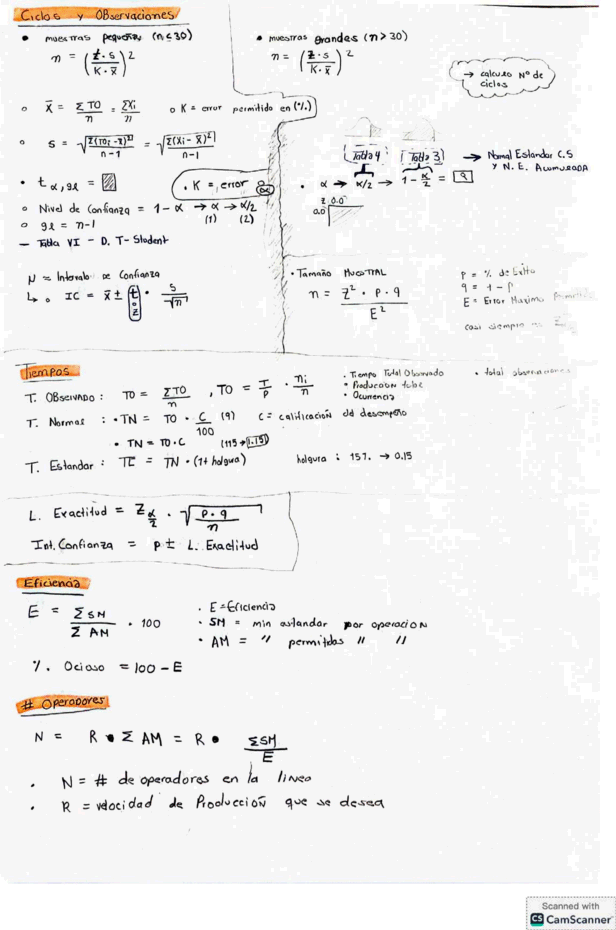 Ciclos y Observaciones
• muestras pequeñas (n ≤ 30)
n = (t · s / K · x̄)²
• muestras grandes (n > 30)
n = (z · s / K · x̄)²
→ calculo N° de ciclos
o x̄ = ΣTO / n = Σxi / n
o K = error permitido en (%)
o S = √(Σ(TOi - x̄)² / n-1) = √(Σ(xi - x̄)² / n-1)
• t α, gl = ▨
• K = error
o Nivel de Confianza = 1 - α → α → α/2
(1) (2)
o gl = n-1
— Tabla VI - D. T- Student
Tabla 4 Tabla 3 → Normal Estandar C.S
y N. E. Acumulada
• α → α/2 → 1 - α/2 =
z 0.0
0.0
N = Intervalo de Confianza
↳ o IC = x̄ ± t o z · S / √n
• Tamaño Muestral
n = Z² · p · q / E²
p = % de Exito
q = 1 - p
E = Error Maximo
casi siempre
Tiempos
T. Observado : TO = ΣTO / n , TO = T / P · ni / n
• Tiempo Total Observado
• Produccion total
• Ocurrencia
• total observaciones
T. Normal : • TN = TO · C / 100 (9) C = calificación del desempeño
• TN = TO · C (115 → 1.15)
T. Estandar : TE = TN · (1 + holgura) holgura : 15% → 0.15
L. Exactitud = Z α/2 · √(p · q / n)
Int. Confianza = p ± L. Exactitud
Eficiencia
E = ΣSM / ΣAM · 100
• E = Eficiencia
• SM = min estandar por operacion
• AM = " permitidos " "
% Ocioso = 100 - E
# Operadores
N = R • Σ AM = R • ΣSM / E
• N = # de operadores en la linea
• R = velocidad de Producción que se desea
Scanned with
CS CamScanner